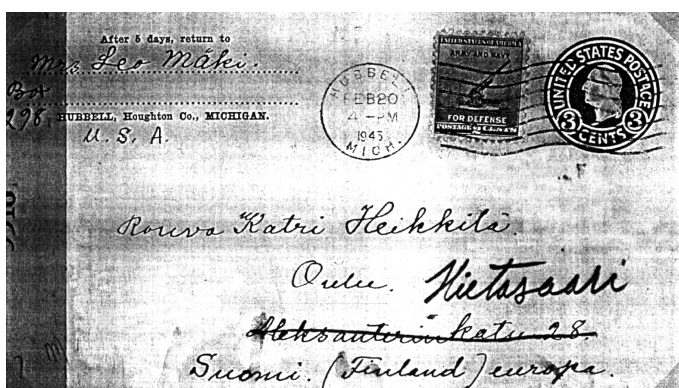 After 5 days, return to
Mrs Leo Mäki.
Box
298, HUBBELL, Houghton Co., MICHIGAN.
U. S. A.
HUBBELL
FEB 20
4 - PM
1945
MICH.
UNITED STATES OF AMERICA
ARMY AND NAVY
FOR DEFENSE
POSTAGE 2 CENTS
UNITED STATES POSTAGE
3 CENTS 3
Rouva Katri Heikkilä.
Oulu. Hietasaari
Aleksanterinkatu 28.
Suomi. (Finland) europa.